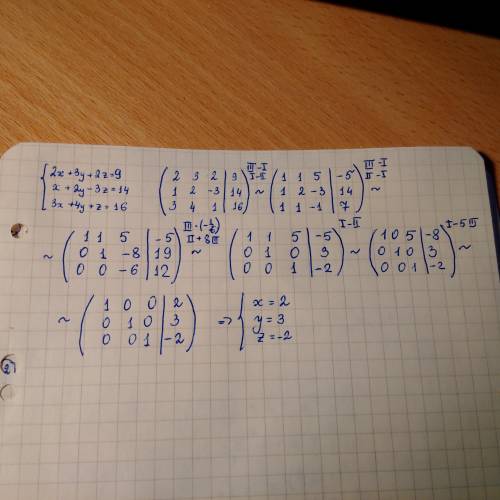 { 2x+3y+2z=9
x+2y-3z=14
3x+4y+z=16
( 2 3 2 | 9
1 2 -3 | 14
3 4 1 | 16 ) III-I I-II ~ ( 1 1 5 | -5
1 2 -3 | 14
1 1 -1 | 7 ) III-I II-I ~
~ ( 1 1 5 | -5
0 1 -8 | 19
0 0 -6 | 12 ) III·(-1/6) II+8III ~ ( 1 1 5 | -5
0 1 0 | 3
0 0 1 | -2 ) I-II ~ ( 1 0 5 | -8
0 1 0 | 3
0 0 1 | -2 ) I-5III ~
~ ( 1 0 0 | 2
0 1 0 | 3
0 0 1 | -2 ) => { x=2
y=3
z=-2
2)